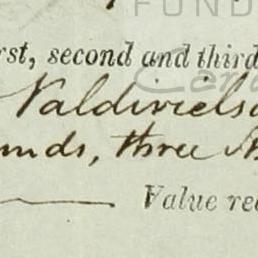 FUND
rst, second and third
Valdiviels
unds, three
Value rec